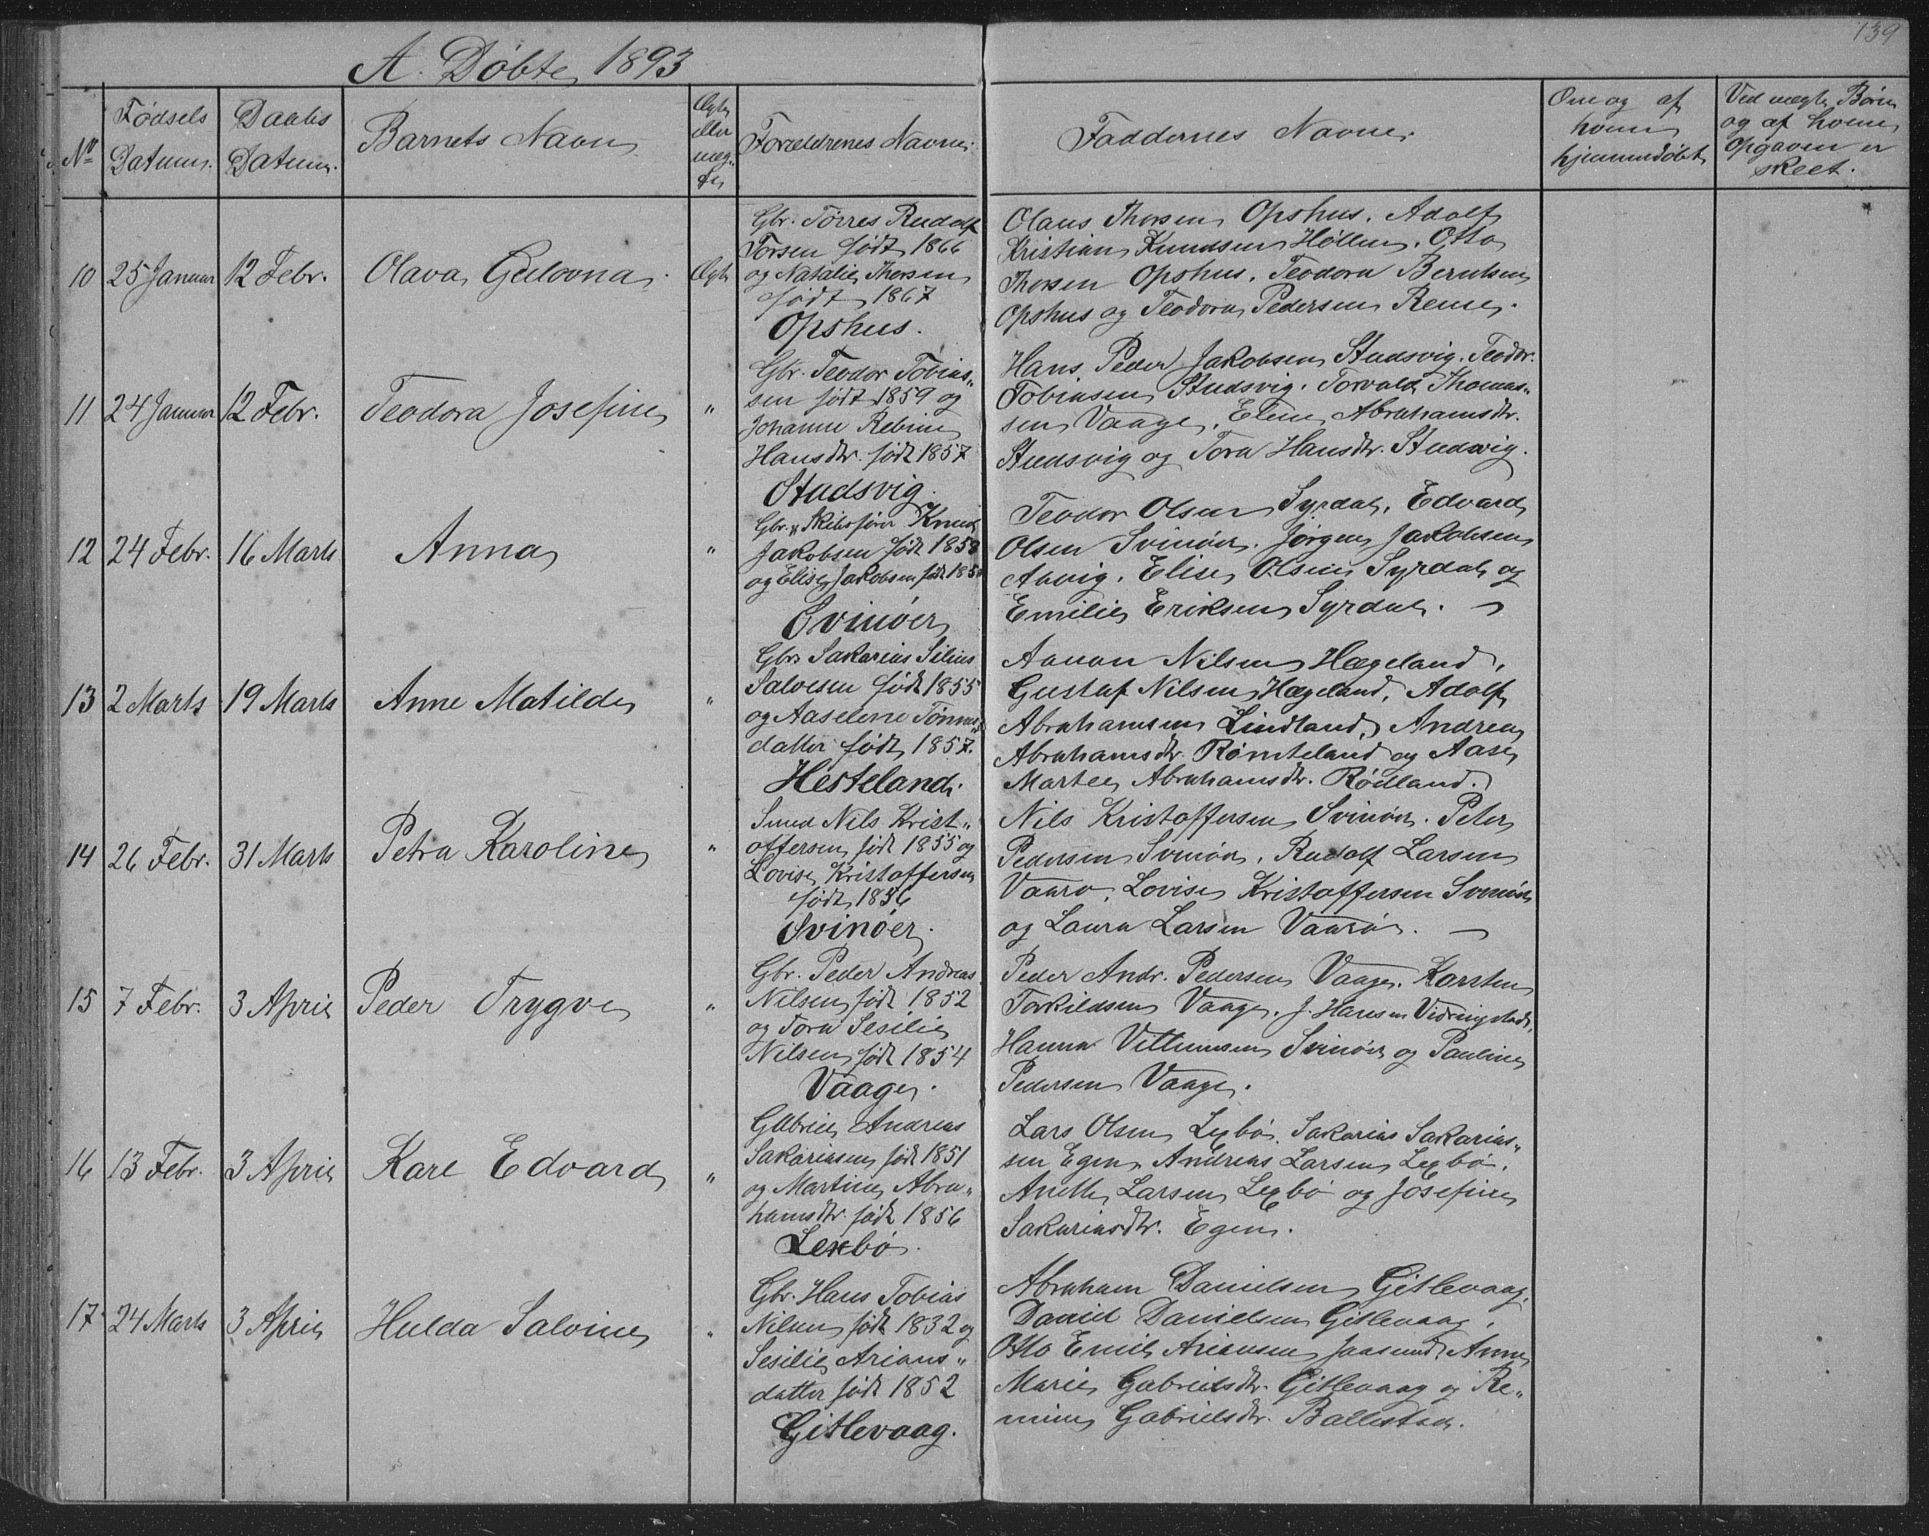 139
A. Døbte 1893
No
Fødsels Datum.
Daabs Datum.
Barnets Navn
Ægte eller uæg- te
Forældrenes Navne.
Faddernes Navne.
Om og af hvem hjemmedøbt
Ved uægte Børn og af hvem Opgaven er skeet.
10 25 Januar 12 Febr. Olava Gulovna. Ægte
Gbr. Tørres Rudolf
Torsen født 1866
og Natalie Thorsen
født 1867
Opshus.
Olaus Thorsen Opshus. Adolf
Kristian Knudsen Høllen. Otto
Thorsen Opshus. Teodora Berntsen
Opshus og Teodora Pedersen Reme.
11 24 Januar 12 Febr. Teodora Josefine "
Gbr. Teodor Tobias-
sen født 1859 og
Johanne Rebine
Hansdtr. født 1857
Studsvig.
Hans Peder Jakobsen Studsvig. Teodor
Tobiasen Studsvig. Torvald Thomas-
sen Vaage. Elene Abrahamsdtr.
Studsvig og Tora Hansdtr. Studsvig.
12 24 Febr. 16 Marts Anna "
Gbr. & Skibsfører Knud
Jakobsen født 1858
og Elise Jakobsen født
Svinøer
Teodor Olsen Syrdal. Edvard
Olsen Svinøer. Jørgen Jakobsen
Elise Olsen Syrdal og
Emilie Eriksen Syrdal.
13 2 Marts 19 Marts Anne Matilde "
Gbr. Sakarias Silius
Salvesen født 1855
og Aaselene Tønnes-
datter født 1857.
Hesteland.
Aanon Nilsen Hægeland.
Gustaf Nilsen Hægeland. Adolf
Abrahamsen Lindland. Andrea
Abrahamsdtr. Rømteland og Aase
Martea Abrahamsdtr. Rødland.
14 26 Febr. 31 Marts Petra Karoline "
Smed Nils Krist-
offersen født 1855 og
Lovise Kristoffersen
født 1856
Svinøer.
Nils Kristoffersen Svinøer. Peter
Pedersen Svinøer. Rudolf Larsen
Vaarø. Lovise Kristoffersen Svinøer
og Laura Larsen Vaarø.
15 7 Febr. 3 April Peder Trygve "
Gbr. Peder Andreas
Nilsen født 1852
og Tora Sesilie
Nilsen født 1854
Vaage.
Peder Andr. Pedersen Vaage. Karsten
Torkildsen Vaage. J. Hansen Vidringstad.
Hanna Villumsen Svinøer og Pauline
Pedersen Vaage.
16 13 Febr. 3 April Karl Edvard "
Gabriel Andreas
Sakariasen født 1851
og Martine Abra-
hamsdtr. født 1856
Lexbø.
Lars Olsen Lexbø. Sakarias Sakarias-
sen Egen. Andreas Larsen Lexbø.
Anette Larsen Lexbø og Josefine
Sakariasdtr. Egen.
17 24 Marts 3 April Hulda Salvine "
Gbr. Hans Tobias
Nilsen født 1832 og
Sesilie Arians-
datter født 1852
Gitlevaag.
Abraham Danielsen Gitlevaag.
Daniel Danielsen Gitlevaag.
Otto Emil Ariansen Jaasund. Anne
Marie Gabrielsdtr. Gitlevaag og Re-
mine Gabrielsdtr. Ballestad.